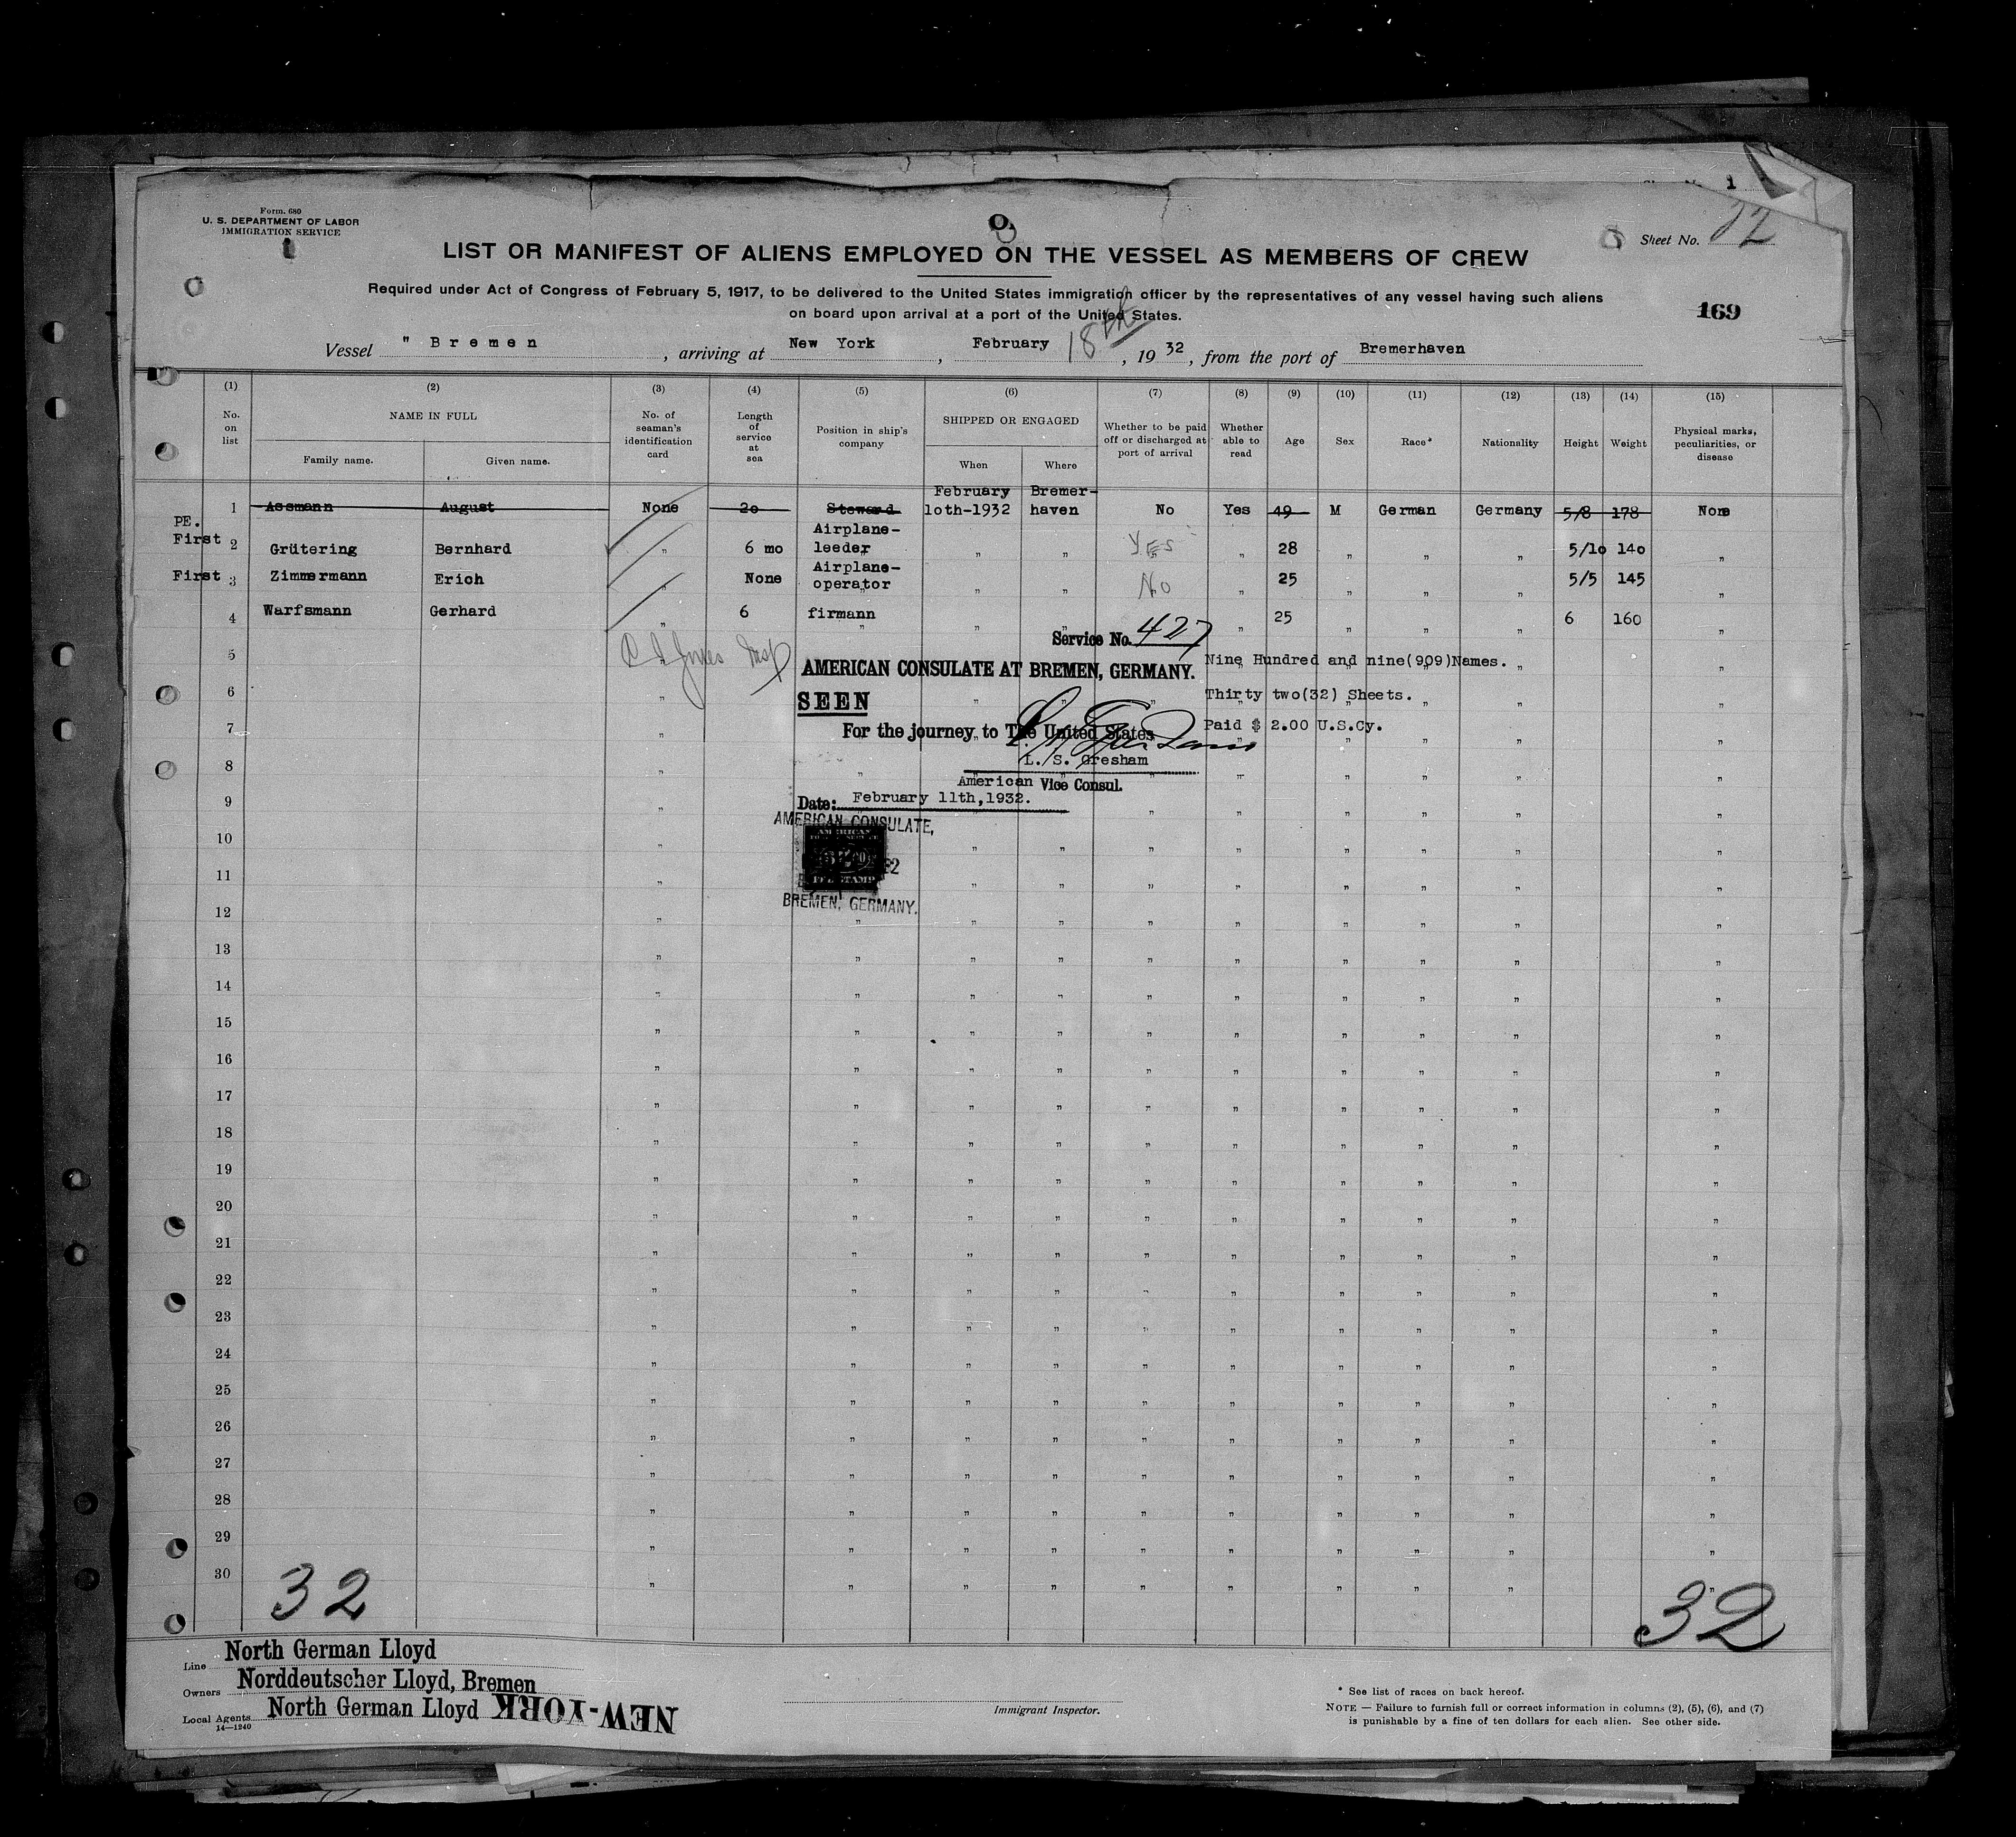 Form. 680
U. S. DEPARTMENT OF LABOR
IMMIGRATION SERVICE
1
Sheet No.
LIST OR MANIFEST OF ALIENS EMPLOYED ON THE VESSEL AS MEMBERS OF CREW
Required under Act of Congress of February 5, 1917, to be delivered to the United States immigration officer by the representatives of any vessel having such aliens
on board upon arrival at a port of the United States.
169
Vessel " Bremen , arriving at New York , February 18th , 19 32 , from the port of Bremerhaven
(1) (2) (3) (4) (5) (6) (7) (8) (9) (10) (11) (12) (13) (14) (15)
No. on list
NAME IN FULL
Family name. Given name.
No. of seaman's identification card
Length of service at sea
Position in ship's company
SHIPPED OR ENGAGED
When Where
Whether to be paid off or discharged at port of arrival
Whether able to read
Age
Sex
Race*
Nationality
Height
Weight
Physical marks, peculiarities, or disease
1 Assmann August None 2o Steward February 1oth-1932 Bremer-haven No Yes 49 M German Germany 5/8 178 None
PE.
First 2 Grütering Bernhard " 6 mo Airplane-leeder " " Yes " 28 " " " 5/1o 14o "
First 3 Zimmermann Erich " None Airplane-operator " " No " 25 " " " 5/5 145 "
4 Warfsmann Gerhard " 6 firmann " " " 25 " " " 6 160 "
Service No. 427
5
AMERICAN CONSULATE AT BREMEN, GERMANY.
Nine Hundred and nine(909)Names.
6
SEEN
Thirty two(32) Sheets.
7
For the journey to The United States
Paid $ 2.00 U.S.Cy.
L. S. Gresham
8
American Vice Consul.
9
Date: February 11th,1932.
AMERICAN CONSULATE,
10
AMERICAN
11
FEE STAMP
BREMEN, GERMANY.
12
13
14
15
16
17
18
19
20
21
22
23
24
25
26
27
28
29
30
32
32
Line North German Lloyd
Owners Norddeutscher Lloyd, Bremen
Local Agents North German Lloyd NEW-YORK
14—1240
Immigrant Inspector.
* See list of races on back hereof.
NOTE — Failure to furnish full or correct information in columns (2), (5), (6), and (7)
is punishable by a fine of ten dollars for each alien. See other side.